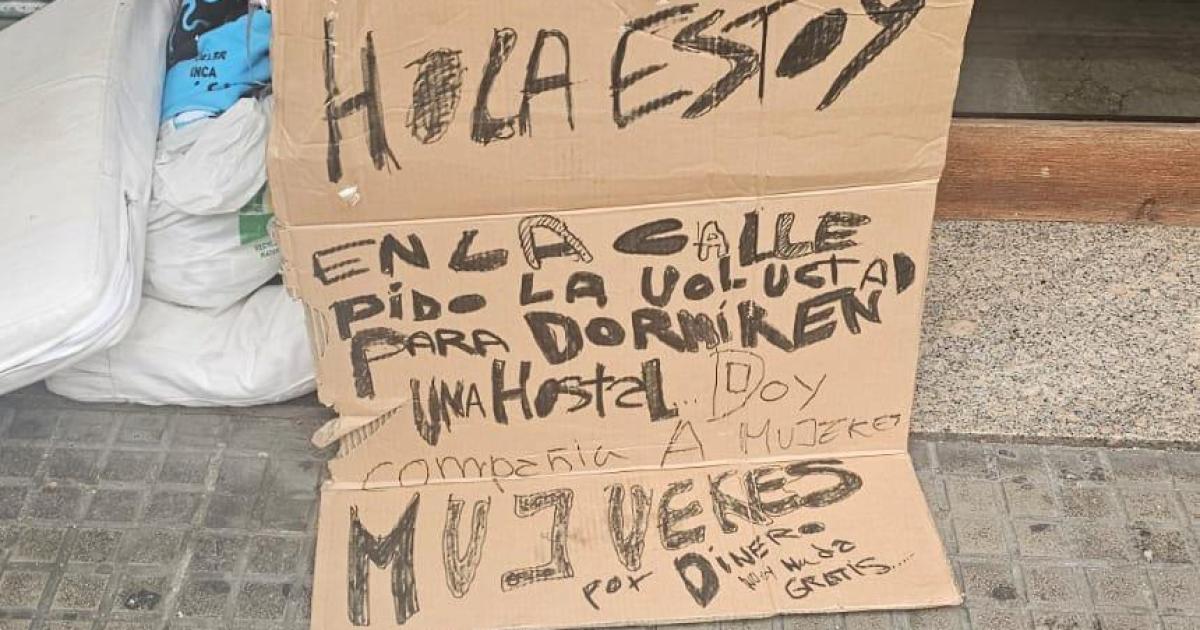 INCA
HOLA ESTOY
EN LA CALLE
PIDO LA VOLUCTAD
PARA DORMIR EN
UNA HOSTAL... DOY
compañia A MUJERES
MUJUERES
POR DINERO
GRATIS....